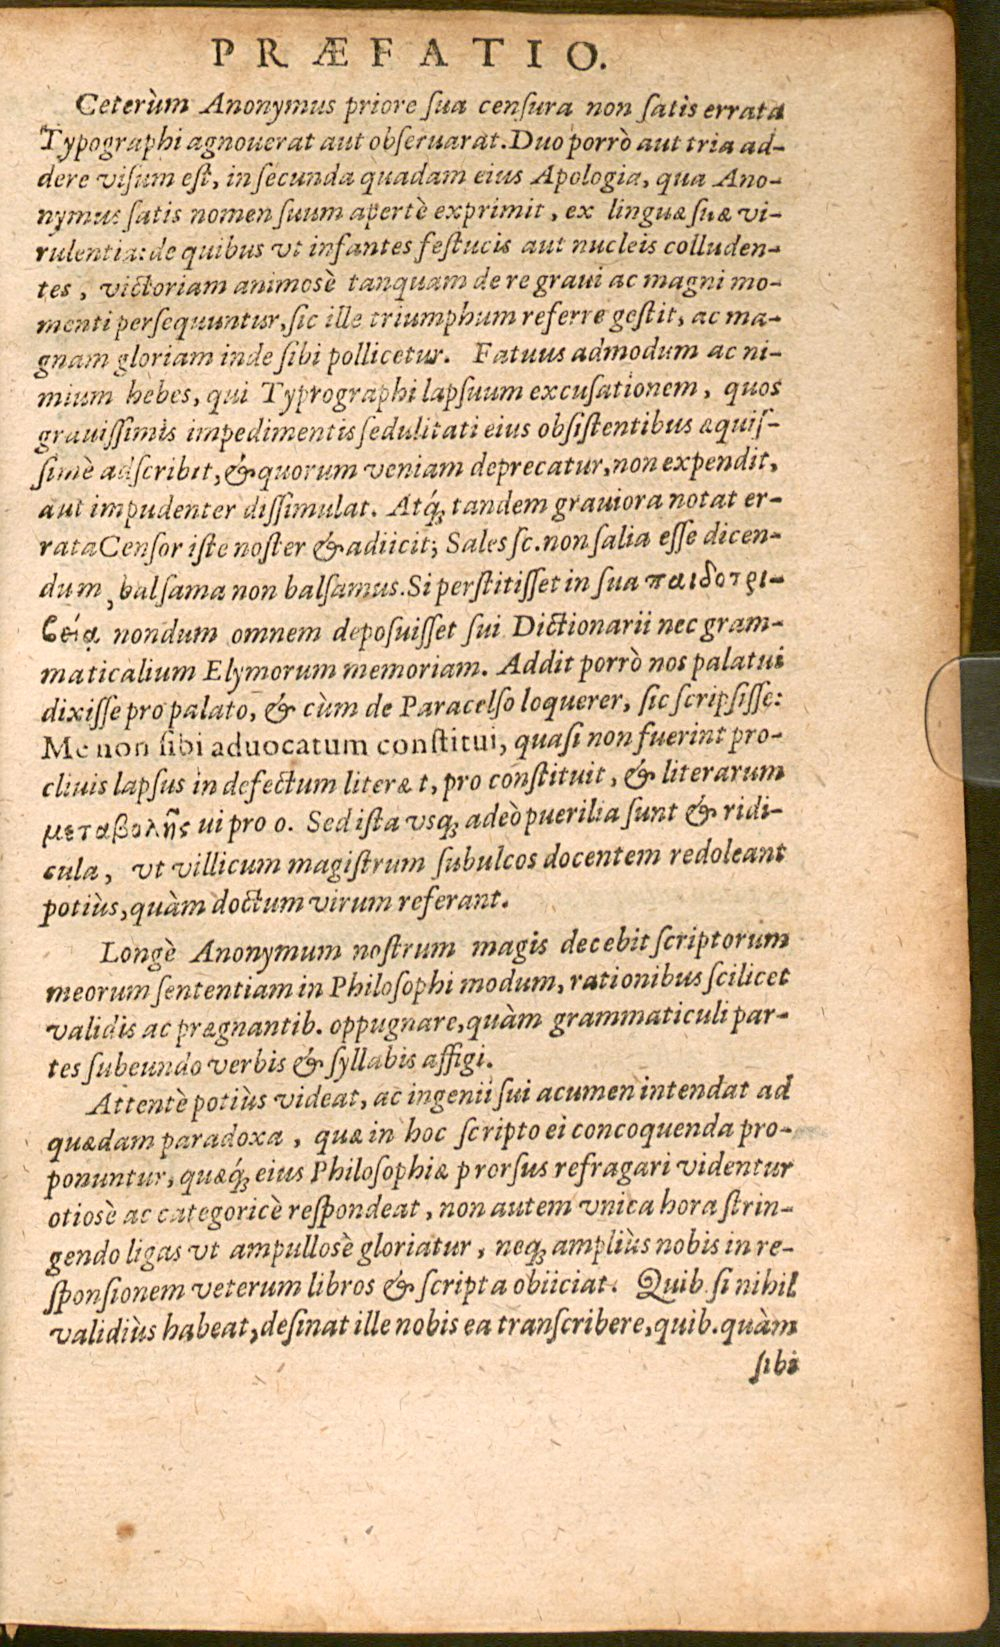 PRÆFATIO.
Ceterùm Anonymus priore ſua cenſura non ſatis errata
Typographi agnouerat aut obſeruarat. Duo porrò aut tria ad-
dere viſum eſt, in ſecunda quadam eius Apologia, qua Ano-
nymus ſatis nomen ſuum apertè exprimit, ex linguæ ſuæ vi-
rulentia: de quibus vt infantes feſtucis aut nucleis colluden-
tes, victoriam animosè tanquam de re graui ac magni mo-
menti perſequuntur, ſic ille triumphum referre geſtit, ac ma-
gnam gloriam inde ſibi pollicetur. Fatuus admodum ac ni-
mium hebes, qui Typrographi lapſuum excuſationem, quos
grauiſſimis impedimentis ſedulitati eius obſiſtentibus æquiſ-
ſimè adſcribit, & quorum veniam deprecatur, non expendit,
aut impudenter diſſimulat. Atq́; tandem grauiora notat er-
rata Cenſor iſte noſter & adiicit; Sales ſc. non ſalia eſſe dicen-
dum, balſama non balſamus. Si perſtitiſſet in ſua παιδοτρι-
βείᾳ nondum omnem depoſuiſſet ſui Dictionarii nec gram-
maticalium Elymorum memoriam. Addit porrò nos palatui
dixiſſe pro palato, & cùm de Paracelſo loquerer, ſic ſcripſiſſe:
Me non ſibi aduocatum conſtitui, quaſi non fuerint pro-
cliuis lapſus in defectum literæ t, pro conſtituit, & literarum
μεταβολῆς ui pro o. Sed iſta vſq; adeò puerilia ſunt & ridi-
cula, vt villicum magiſtrum ſubulcos docentem redoleant
potiùs, quàm doctum virum referant.
Longè Anonymum noſtrum magis decebit ſcriptorum
meorum ſententiam in Philoſophi modum, rationibus ſcilicet
validis ac prægnantib. oppugnare, quàm grammaticuli par-
tes ſubeundo verbis & ſyllabis affigi.
Attentè potiùs videat, ac ingenii ſui acumen intendat ad
quædam paradoxa, quæ in hoc ſcripto ei concoquenda pro-
ponuntur, quæq́; eius Philoſophiæ prorſus refragari videntur
otiosè ac categoricè reſpondeat, non autem vnica hora ſtrin-
gendo ligas vt ampullosè gloriatur, neq; ampliùs nobis in re-
ſponſionem veterum libros & ſcripta obiiciat. Quib. ſi nihil
validiùs habeat, deſinat ille nobis ea tranſcribere, quib. quàm
ſibi